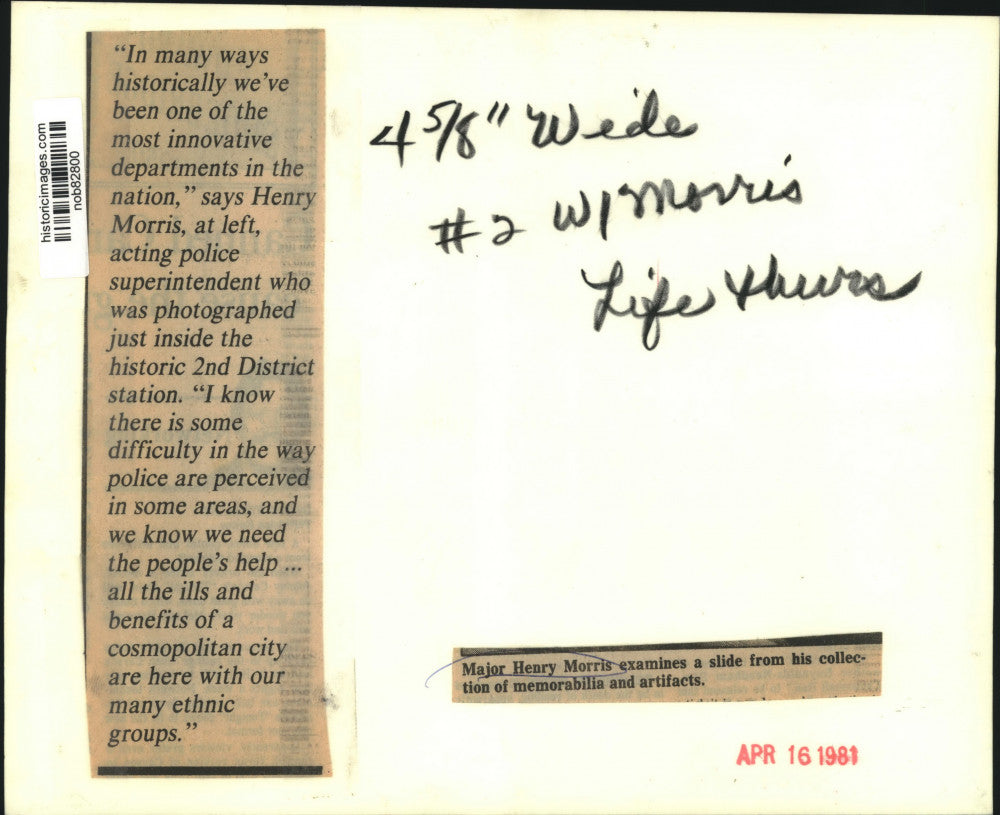 historicimages.com
nob82800
“In many ways
historically we’ve
been one of the
most innovative
departments in the
nation,” says Henry
Morris, at left,
acting police
superintendent who
was photographed
just inside the
historic 2nd District
station. “I know
there is some
difficulty in the way
police are perceived
in some areas, and
we know we need
the people’s help ...
all the ills and
benefits of a
cosmopolitan city
are here with our
many ethnic
groups.”
4 5/8" Wide
#2 W/Morris
Life thurs
Major Henry Morris examines a slide from his collec-
tion of memorabilia and artifacts.
APR 16 1981